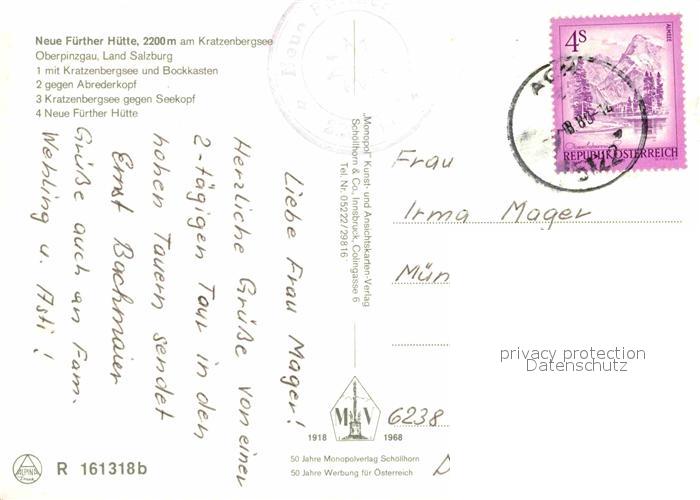 Neue Fürther Hütte, 2200m am Kratzenbergsee
Oberpinzgau, Land Salzburg
1 mit Kratzenbergsee und Bockkasten
2 gegen Abrederkopf
3 Kratzenbergsee gegen Seekopf
4 Neue Fürther Hütte
Liebe Frau Mager!
Herzliche Grüße von einer
2-tägigen Tour in den
hohen Tauern sendet
Ernst Bachmaier
Grüße auch an Fam.
Wehling u. Asti!
„Monopol" Kunst- und Ansichtskarten-Verlag
Schöllhorn & Co., Innsbruck, Colingasse 6
Tel. Nr. 05222/29816
Neue Fürther
4S
ALMSEE
REPUBLIK ÖSTERREICH
5122
Frau
Irma Mager
Mün
6238
privacy protection
Datenschutz
M V
1918 1968
50 Jahre Monopolverlag Schöllhorn
50 Jahre Werbung für Österreich
ALPINA
R 161318b